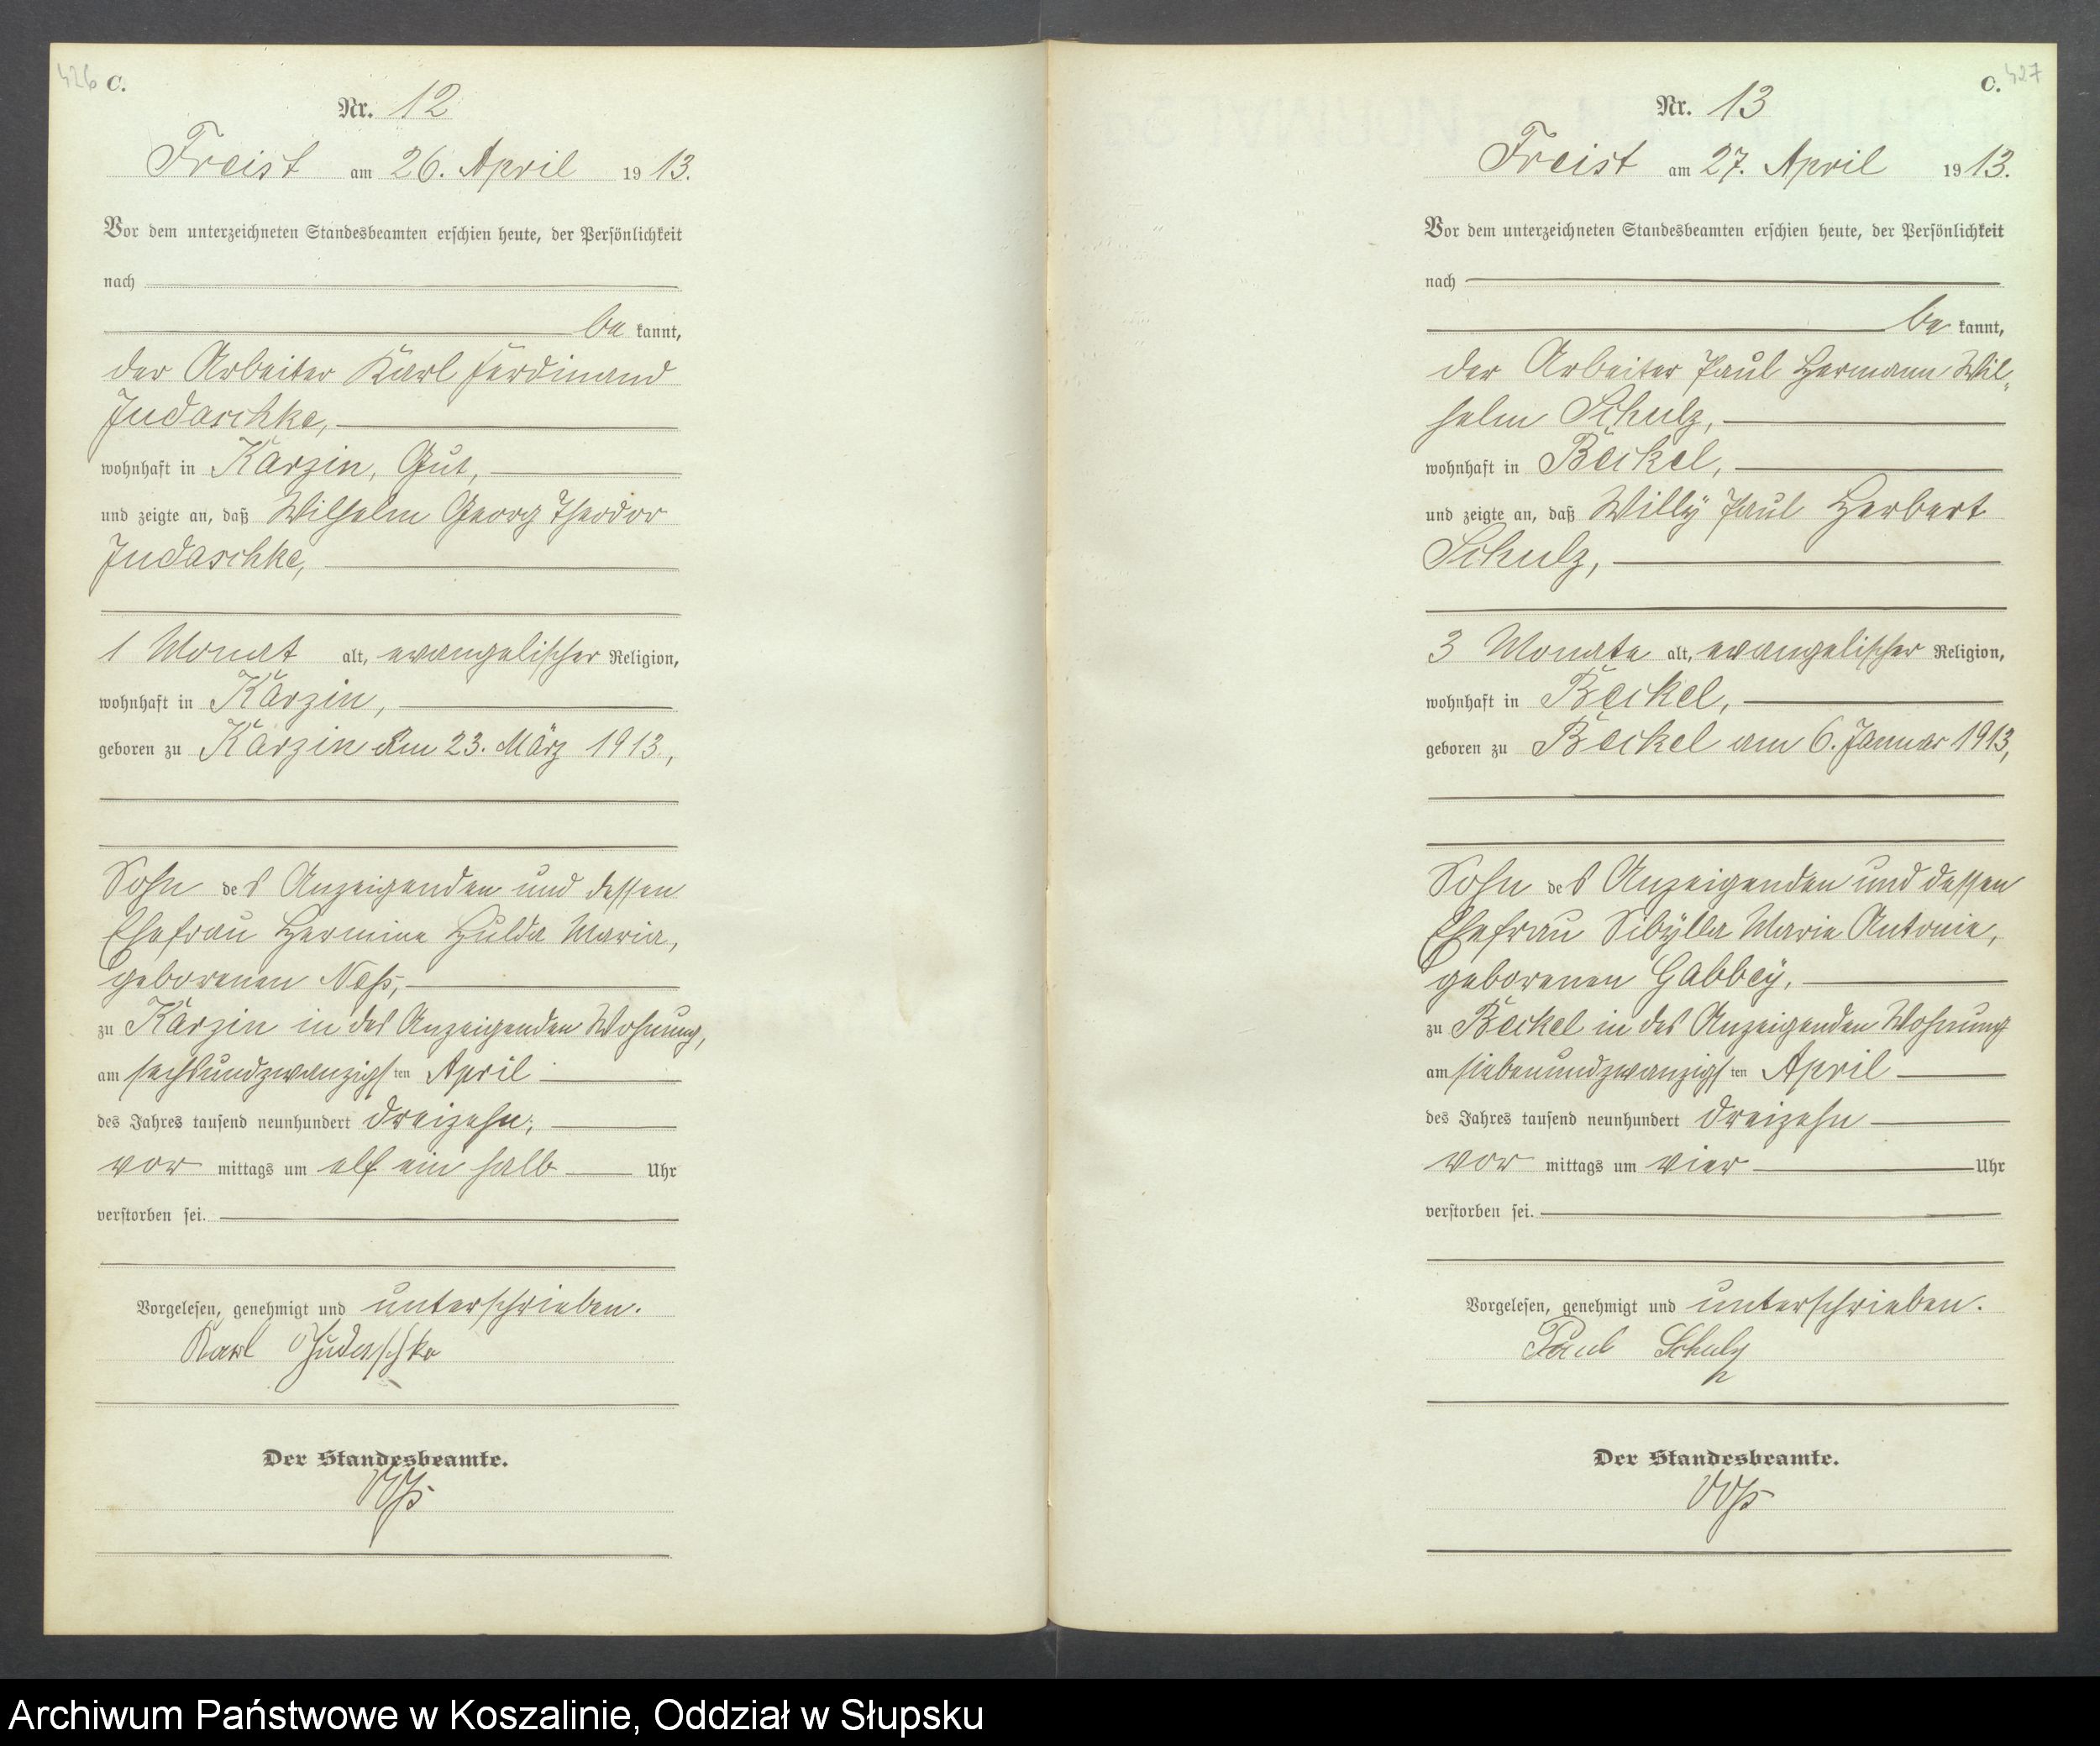 426 C.
Nr. 12
Freist am 26. April 1913.
Vor dem unterzeichneten Standesbeamten erschien heute, der Persönlichkeit
nach
be kannt,
der Arbeiter Karl Ferdinand
Judaschke,
wohnhaft in Karzin, Gut,
und zeigte an, daß Wilhelm Georg Theodor
Judaschke,
1 Monat alt, evangelischer Religion,
wohnhaft in Karzin,
geboren zu Karzin am 23. März 1913,
Sohn des Anzeigenden und dessen
Ehefrau Hermine Hulda Maria,
geborenen Neß,
zu Karzin in des Anzeigenden Wohnung,
am sechsundzwanzigsten April
des Jahres tausend neunhundert dreizehn,
vor mittags um elf ein halb Uhr
verstorben sei.
Vorgelesen, genehmigt und unterschrieben.
Karl Judaschke
Der Standesbeamte.
Voß
C. 427
Nr. 13
Freist am 27. April 1913.
Vor dem unterzeichneten Standesbeamten erschien heute, der Persönlichkeit
nach
be kannt,
der Arbeiter Paul Hermann Wil-
helm Schulz,
wohnhaft in Beckel,
und zeigte an, daß Willy Paul Herbert
Schulz,
3 Monate alt, evangelischer Religion,
wohnhaft in Beckel,
geboren zu Beckel am 6. Januar 1913,
Sohn des Anzeigenden und dessen
Ehefrau Sibylla Marie Antonie,
geborenen Gabbey,
zu Beckel in des Anzeigenden Wohnung
am siebenundzwanzigsten April
des Jahres tausend neunhundert dreizehn
vor mittags um vier Uhr
verstorben sei.
Vorgelesen, genehmigt und unterschrieben.
Paul Schulz
Der Standesbeamte.
Voß
Archiwum Państwowe w Koszalinie, Oddział w Słupsku